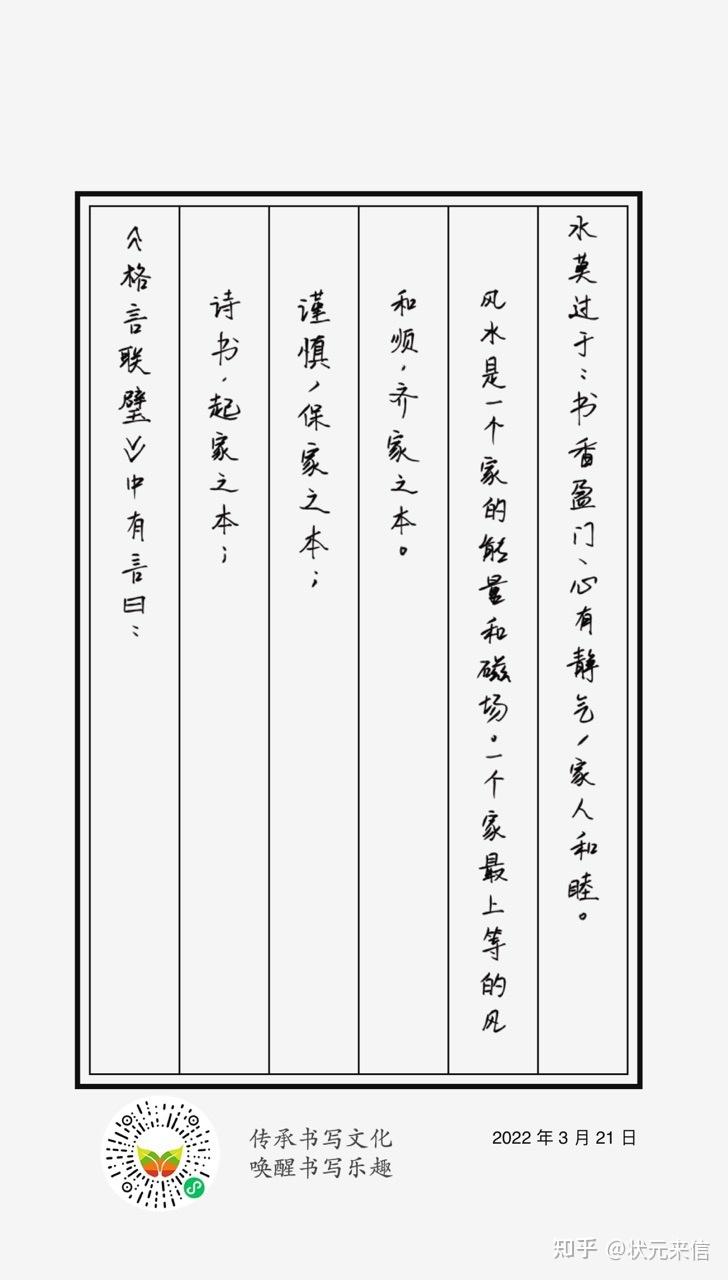 《格言联璧》中有言曰：
诗书，起家之本；
谨慎，保家之本；
和顺，齐家之本。
风水是一个家的能量和磁场。一个家最上等的风
水莫过于：书香盈门、心有静气，家人和睦。
传承书写文化
唤醒书写乐趣
2022 年 3 月 21 日
知乎 @状元来信